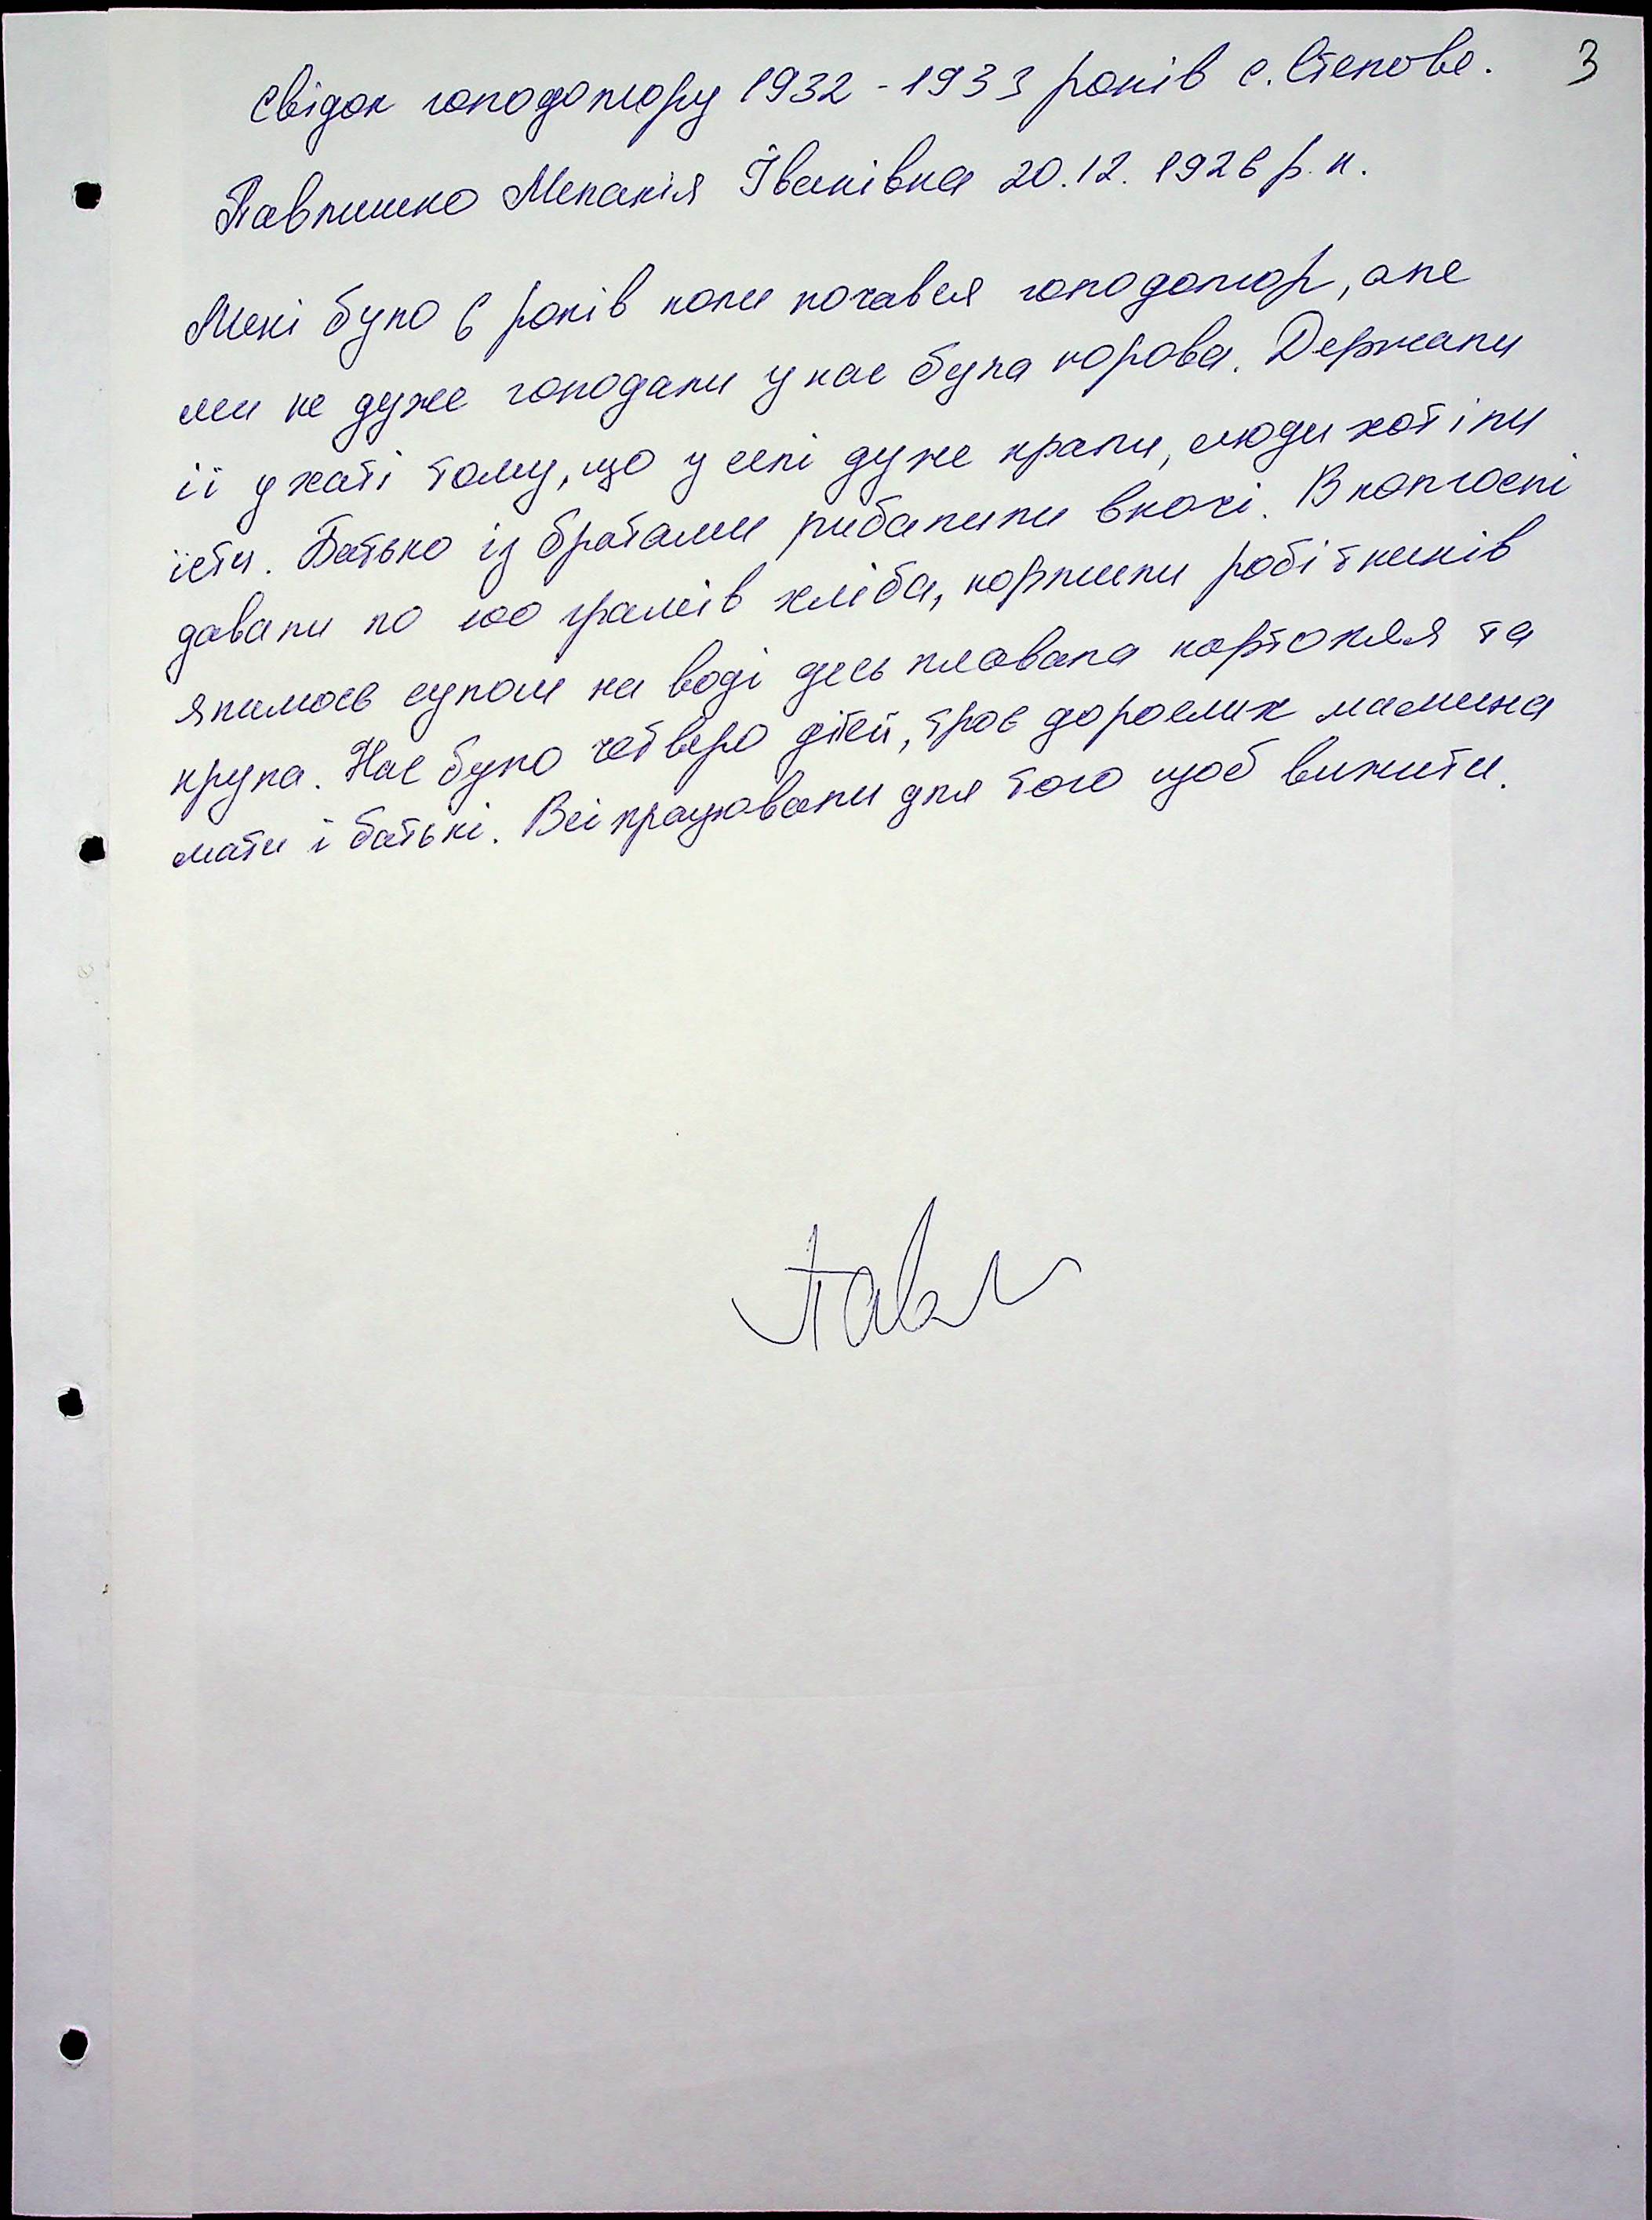 3
Свідок голодомору 1932-1933 років с. Степове.
Павлишко Меланія Іванівна 20.12.1926 р.н.
Мені було 6 років коли почався голодомор, але
ми не дуже голодали у нас була корова. Держали
її у хаті тому, що у селі дуже крали, люди хотіли
їсти. Батько із братами рибалили вночі. В колгоспі
давали по 100 грамів хліба, кормили робітників
якимось супом на воді десь плавала картопля та
крупа. Нас було четверо дітей, троє дорослих мамина
мати і батькі. Всі працювали для того щоб вижити.
Павл